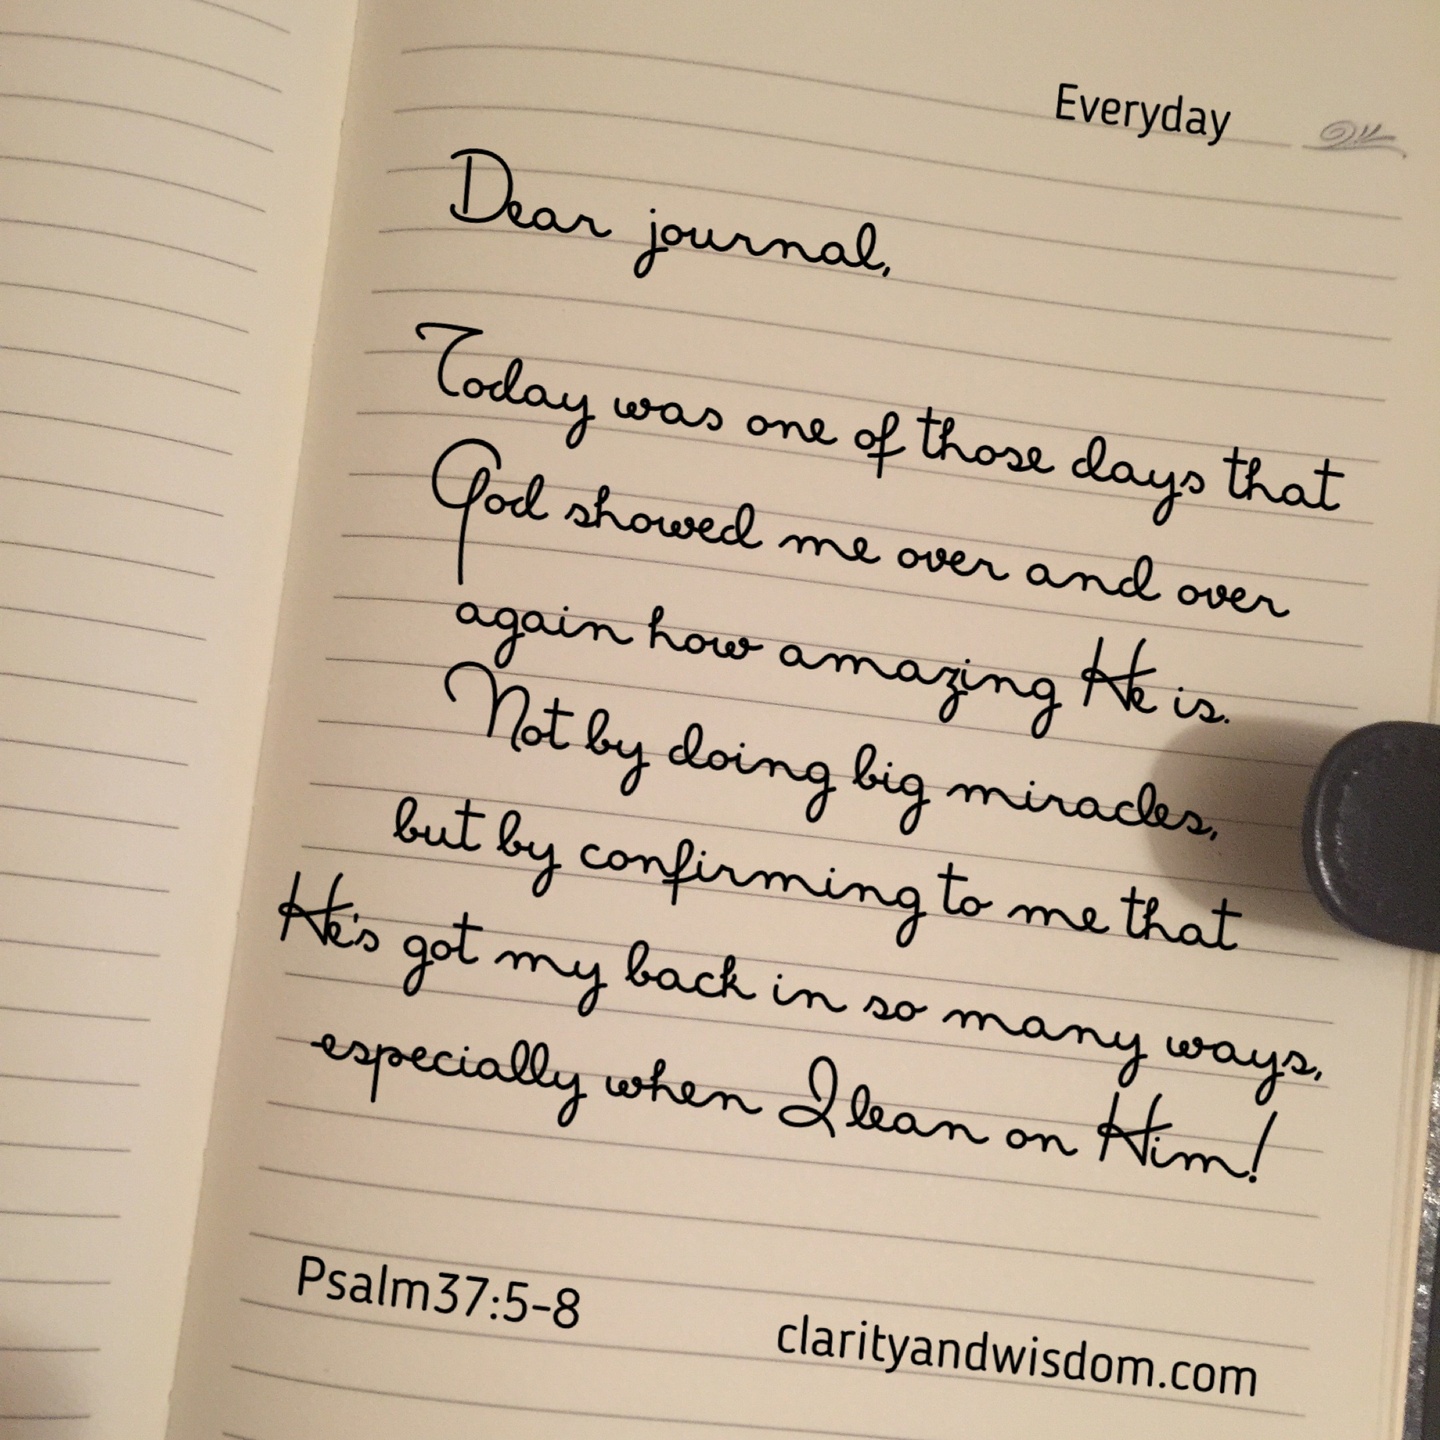 Everyday
Dear journal,
Today was one of those days that
God showed me over and over
again how amazing He is.
Not by doing big miracles,
but by confirming to me that
He's got my back in so many ways,
especially when I lean on Him!
Psalm37:5-8
clarityandwisdom.com